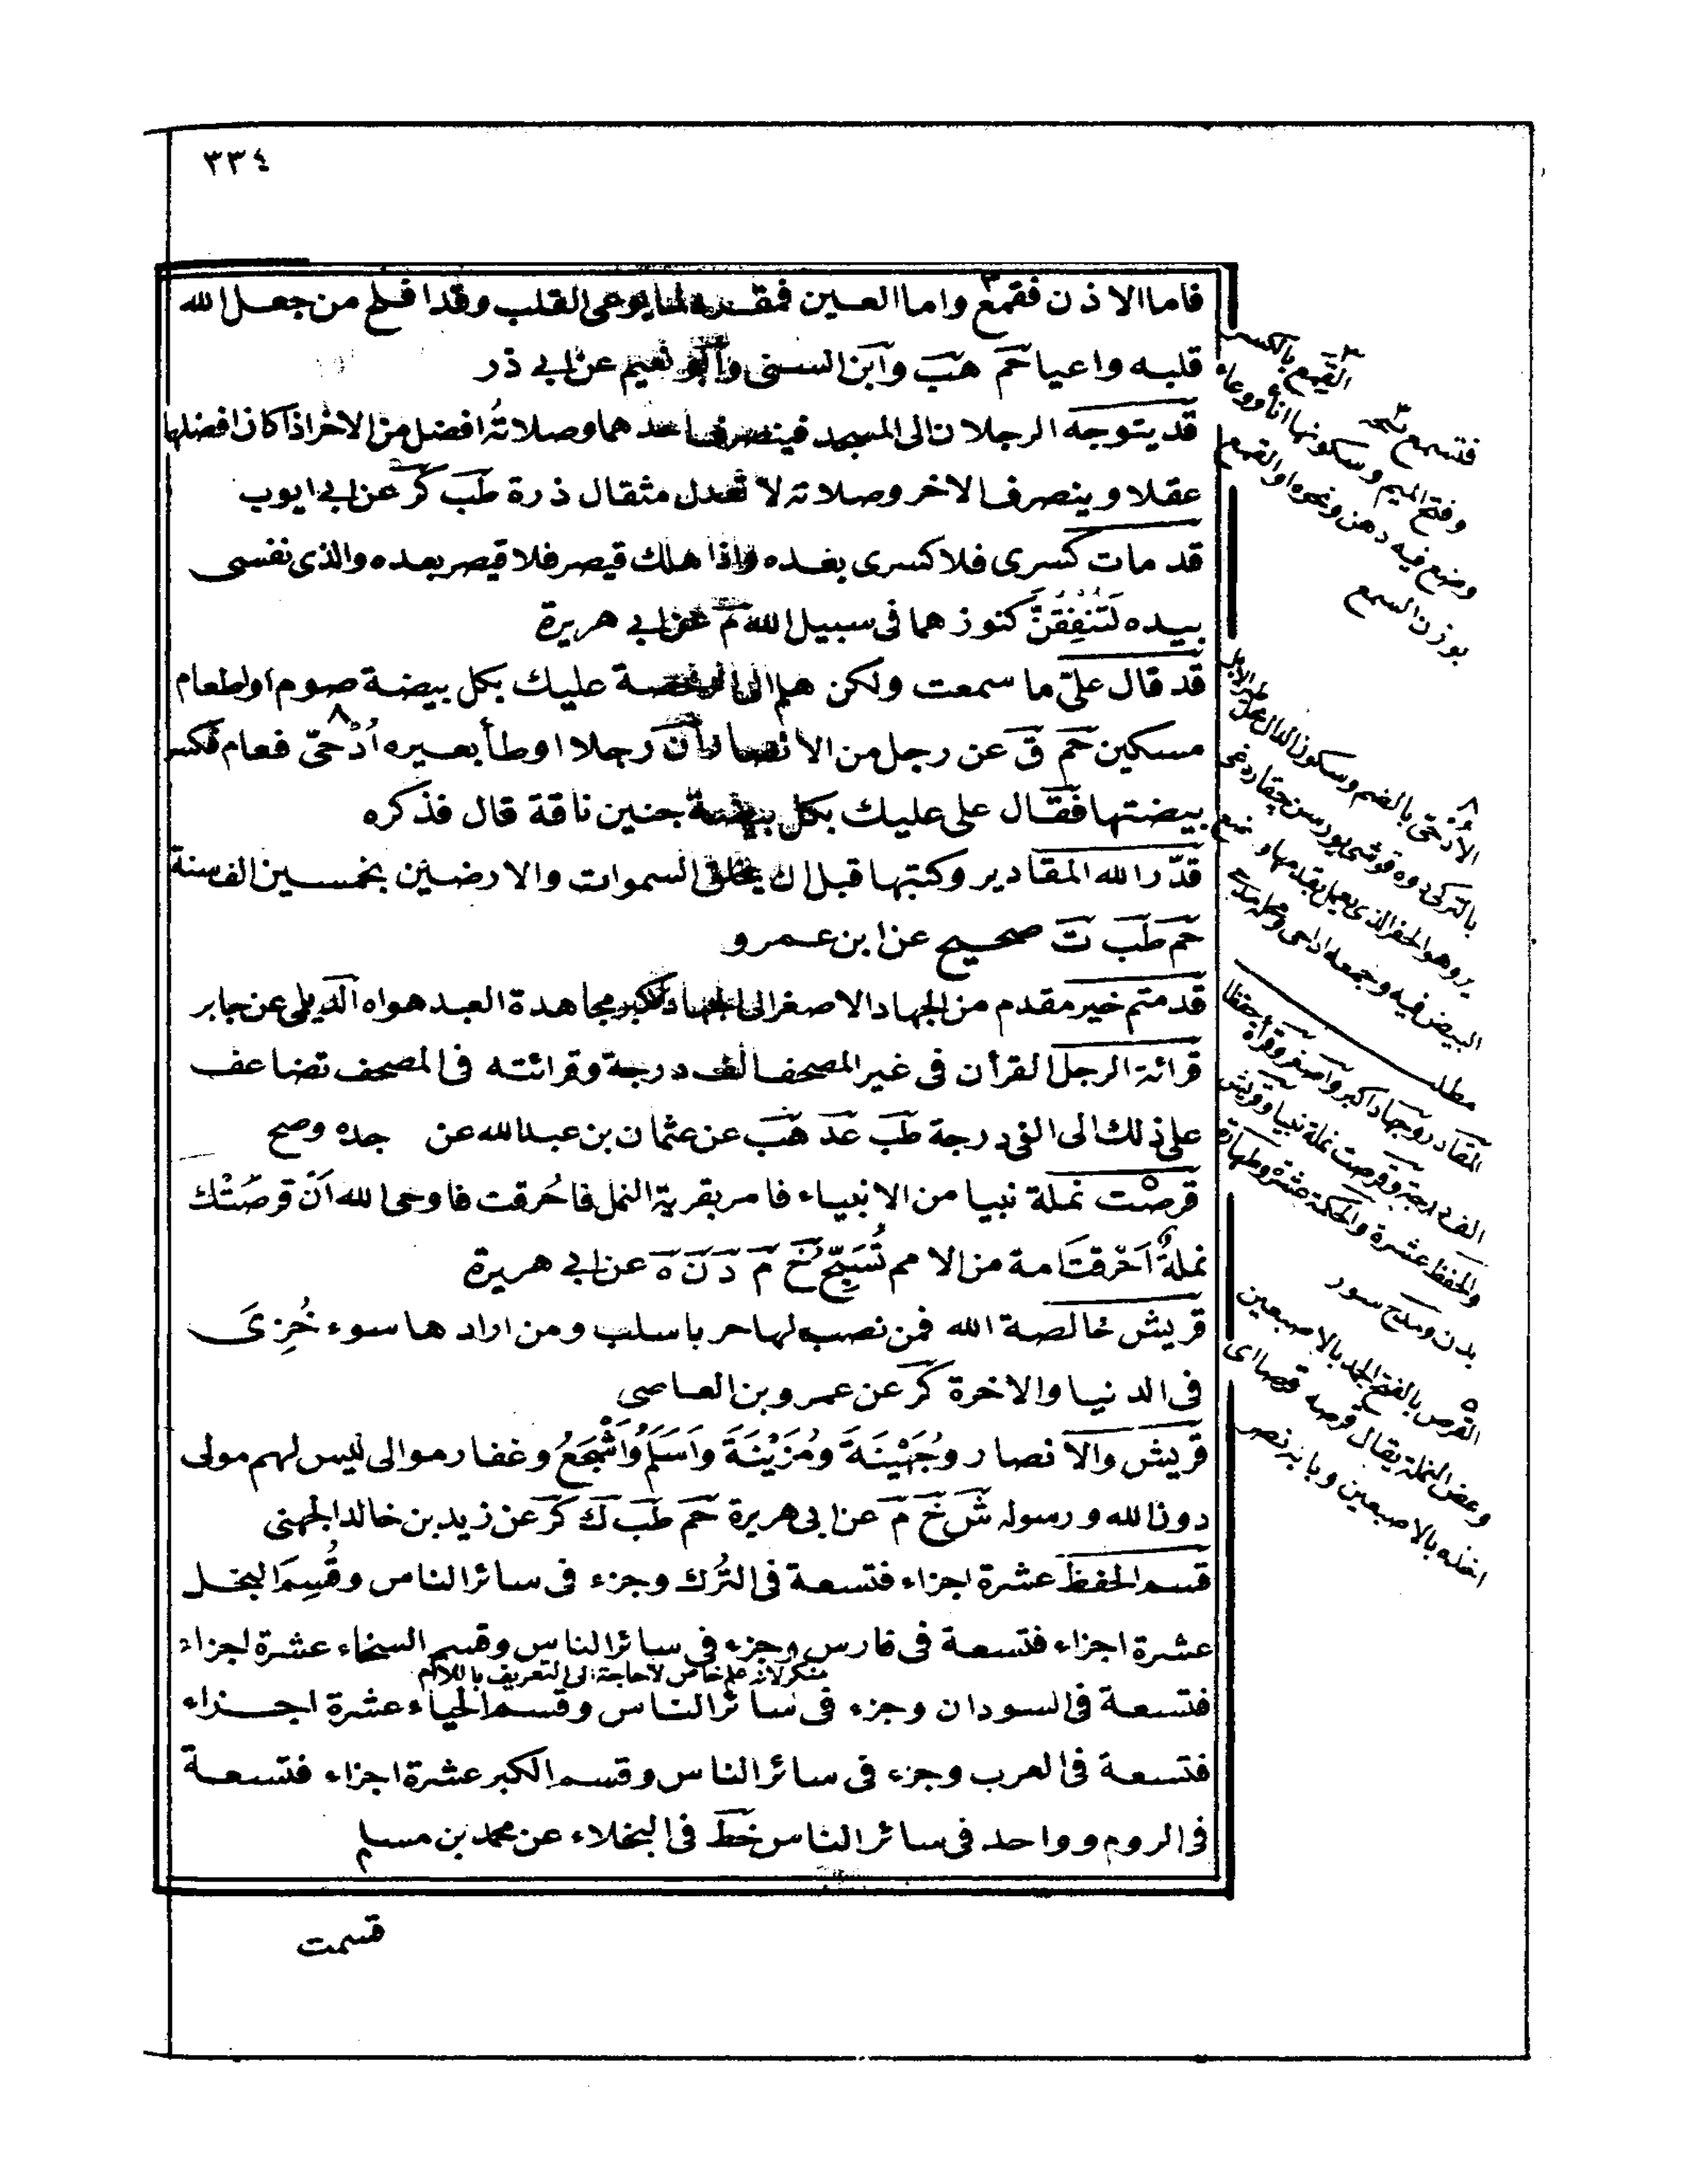 ٣٣٤
فاما الاذن فقمع واما العين فمقرة لما يوعى القلب وقد افلح من جعل الله
قلبه واعيا حم هب وابن السنى وابو نعيم عن ابي ذر
قد يتوجه الرجلان الى المسجد فينصرف احدهما وصلاتُه افضل من الاخر اذا كان افضلهما
عقلا وينصرف الاخر وصلاته لا تعدل مثقال ذرة طب كر عن ابي ايوب
قد مات كسرى فلا كسرى بعده واذا هلك قيصر فلا قيصر بعده والذى نفسى
بيده لَتُنْفِقُنَّ كنوزهما فى سبيل الله م عن ابي هريرة
قد قال علىّ ما سمعت ولكن هلم الى الرخصة عليك بكل بيضة صوم او اطعام
مسكين حم ق عن رجل من الانصار ان رجلا اوطأ بعيره اُدْحىّ فعام فكسر
بيضتها فقال على عليك بكل بيضة جنين ناقة قال فذكره
قدّر الله المقادير وكتبها قبل ان يخلق السموات والارضين بخمسين الف سنة
حم طب ت صحيح عن ابن عمرو
قدمتم خير مقدم من الجهاد الاصغر الى الجهاد الاكبر مجاهدة العبد هواه الديلمى عن جابر
قرائة الرجل القرأن فى غير المصحف الف درجة وقرائته فى المصحف تضاعف
على ذلك الى الفى درجة طب عد هب عن عثمان بن عبد الله عن جده وصح
قرصت نملة نبيا من الانبياء فامر بقرية النمل فاُحرقت فاوحى الله اَنْ قرصَتْك
نملةٌ اَحْرقتَ امة من الامم تُسَبِّحُ خ م د ن ه عن ابي هريرة
قريش خالصة الله فمن نصب لها حربا سلب ومن ارادها سوء خُزِىَ
فى الدنيا والاخرة كر عن عمرو بن العاصى
قريش والانصار وجُهَيْنَةَ ومُزَيْنَةَ واَسَلَمُ واَشْجَعُ وغفار موالى ليس لهم مولى
دون الله ورسوله ش خ م عن ابى هريرة حم طب ك كر عن زيد بن خالد الجهنى
قسم الحفظ عشرة اجزاء فتسعة فى الترك وجزء فى سائر الناس وقُسِمَ البخل
عشرة اجزاء فتسعة فى فارس وجزء فى سائر الناس وقسم السخاء عشرة اجزاء
منكر لانه علم خاص لا حاجة الى التعريف باللام
فتسعة فى السودان وجزء فى سائر الناس وقسم الحياء عشرة اجزاء
فتسعة فى العرب وجزء فى سائر الناس وقسم الكبر عشرة اجزاء فتسعة
فى الروم وواحد فى سائر الناس خط فى البخلاء عن محمد بن مسلم
قسمت
٣ القمع بالكسر
وفتح الميم وسكونها اناء ووعاء
وضع فيه دهن ونحوه او القمع
بوزن السمع
٨ الاُدْحى بالضم وسكون الدال
البيض فيه وجمعه اداحى
مطلب
المقادير وجهاد اكبر واصغر وقرأة
الف درجة وقرصت نملة نبيا وقريش
والحفظ عشرة
بدن ومدح سور
٥ القرص بالفتح الجلد بالاصبعين
وعض النملة يقال قرصه قرصا اى
اخذه بالاصبعين وبابه نصر